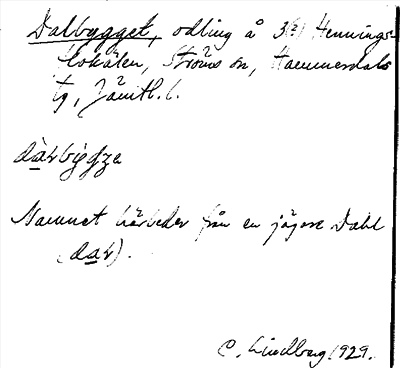 Dalbygget, odling å 3(2) Hennings-
klokälen, Ströms sn, Hammerdals
tg, Jämtl. l.
dàrbyǵʒe
Namnet härleder från en jägare Dahl
(dar).
C. Lindberg 1929.